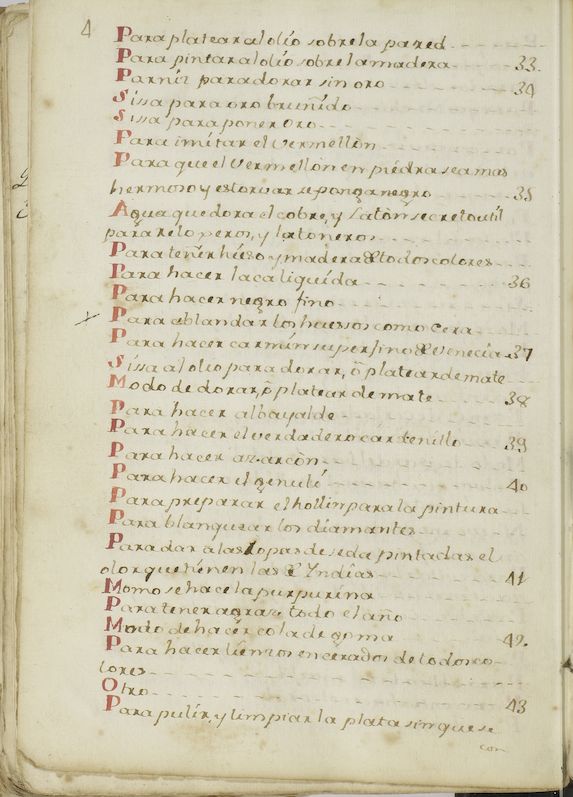 4
Para platear al olio sobre la pared
Para pintar al olio sobre la madera 33.
Parniz para dorar sin oro 34
Sisa para oro bruñido
Sisa para poner oro
Para imitar el vermellon
Para que el vermellon en piedra sea mas
hermoso y estorvar se ponga negro 35
Agua que dora el cobre, y laton secreto util
para reloxeros, y latoneros
Para teñir hueso y madera de todos colores
Para hacer laca liquida 36
Para hacer negro fino
Para ablandar los huessos como cera
Para hacer carmin superfino de Venecia 37
Sissa al olio para dorar, ô platear de mate
Modo de dorar, ô platear de mate 38
Para hacer albayalde
Para hacer el verdadero cardenillo 39
Para hacer azarcòn
Para hacer el genulí 40
Para preparar el hollin para la pintura
Para blanquear los diamantes
Para dar a las ropas de seda pintadas el
olor que tienen las de Yndias 41
Momo se hace la purpurina
Para tener agraz todo el año
Modo de hacer cola de goma 42.
Para hacer lienzos encerados de todos co-
lores
Otro 43
Para pulir, y limpiar la plata sin que se
con